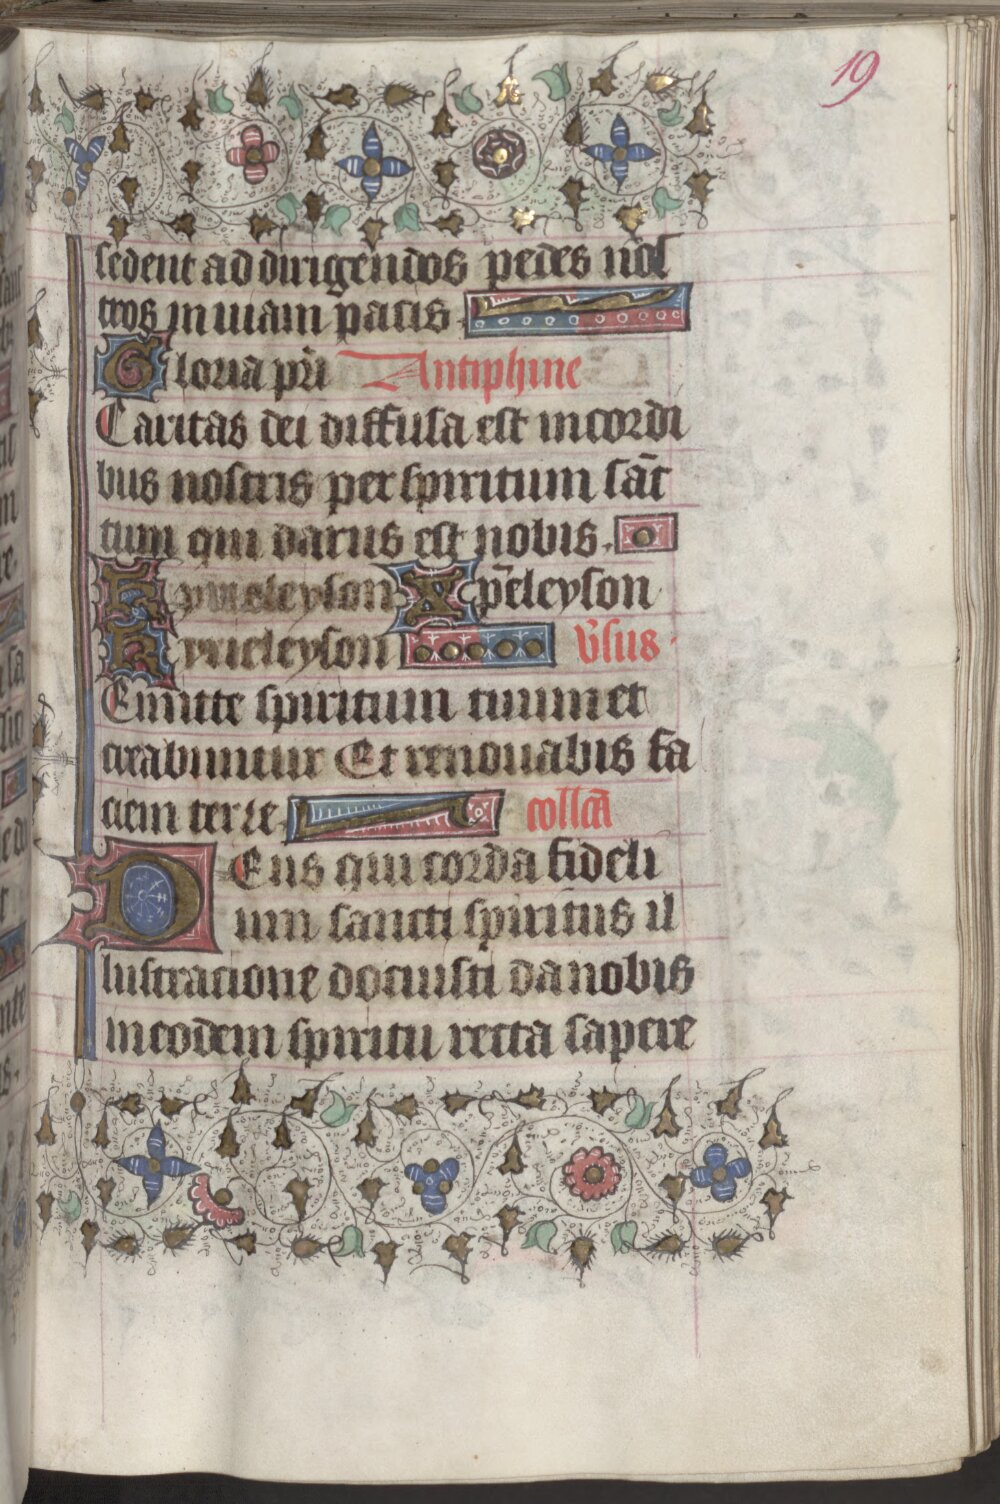 19
sedent ad dirigendos pedes nr̄os
tros in uiam pacis
Gloria pr̄i Antiphine
Caritas dei diffusa est in cordi
bus nostris per spiritum sāc
tum qui datus est nobis.
Kyrieleyson Xp̄eleyson
Kyrieleyson v̄sus
Emitte spiritum tuum et
creabuntur Et renouabis fa
ciem terre collc̄a
Deus qui corda fideli
um sancti spiritus il
lustracione docuisti da nobis
in eodem spiritu recta sapere